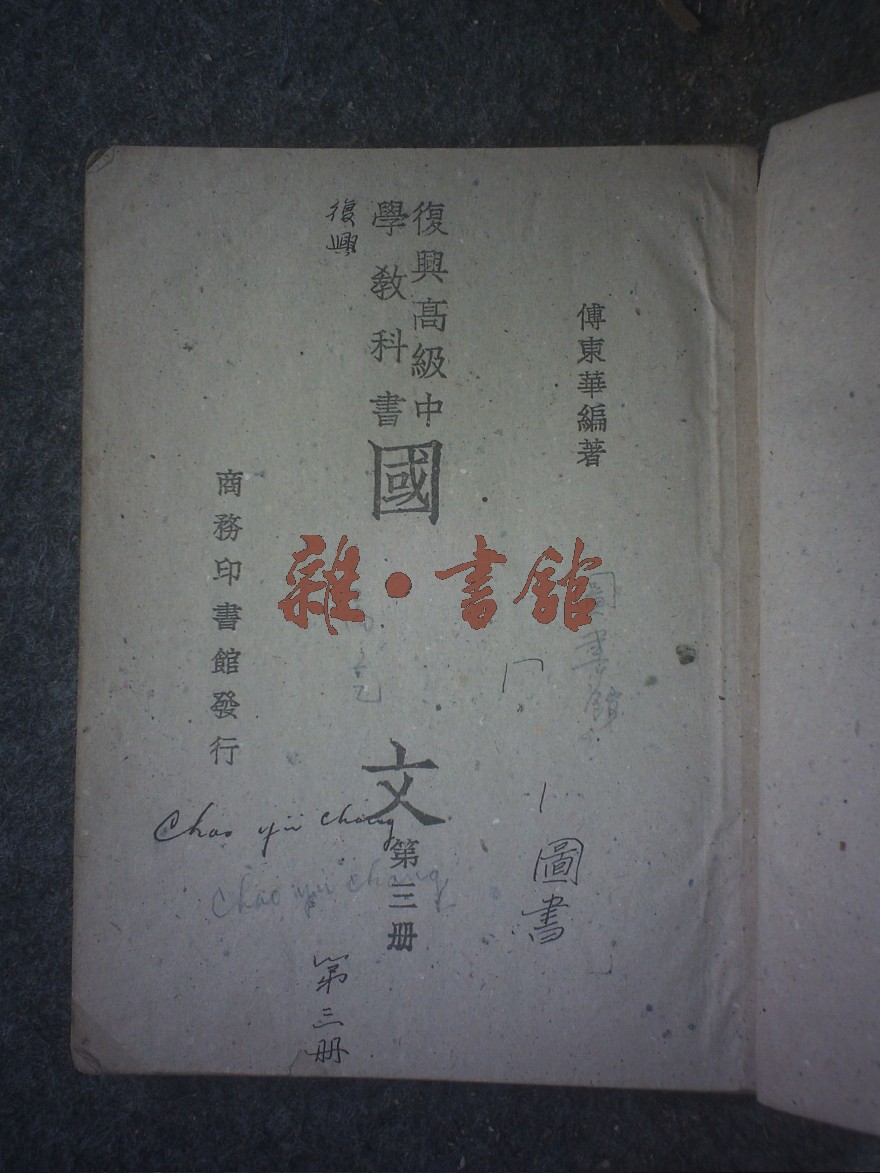 傅東華編著
復興高級中
學教科書
國文
第三册
復興
商務印書館發行
雜·書館
圖書館
圖書
Chao yü chang
Chao yu chang
第三册